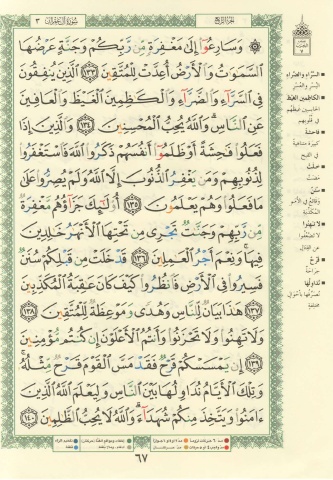 سورة آل عمران ٣
الجزء الرابع
وَسَارِعُوٓا۟ إِلَىٰ مَغْفِرَةٍ مِّن رَّبِّكُمْ وَجَنَّةٍ عَرْضُهَا
ٱلسَّمَٰوَٰتُ وَٱلْأَرْضُ أُعِدَّتْ لِلْمُتَّقِينَ ١٣٣ ٱلَّذِينَ يُنفِقُونَ
فِى ٱلسَّرَّآءِ وَٱلضَّرَّآءِ وَٱلْكَٰظِمِينَ ٱلْغَيْظَ وَٱلْعَافِينَ
عَنِ ٱلنَّاسِ ۗ وَٱللَّهُ يُحِبُّ ٱلْمُحْسِنِينَ ١٣٤ وَٱلَّذِينَ إِذَا
فَعَلُوا۟ فَٰحِشَةً أَوْ ظَلَمُوٓا۟ أَنفُسَهُمْ ذَكَرُوا۟ ٱللَّهَ فَٱسْتَغْفَرُوا۟
لِذُنُوبِهِمْ وَمَن يَغْفِرُ ٱلذُّنُوبَ إِلَّا ٱللَّهُ وَلَمْ يُصِرُّوا۟ عَلَىٰ
مَا فَعَلُوا۟ وَهُمْ يَعْلَمُونَ ١٣٥ أُو۟لَٰٓئِكَ جَزَآؤُهُم مَّغْفِرَةٌ
مِّن رَّبِّهِمْ وَجَنَّٰتٌ تَجْرِى مِن تَحْتِهَا ٱلْأَنْهَٰرُ خَٰلِدِينَ
فِيهَا ۚ وَنِعْمَ أَجْرُ ٱلْعَٰمِلِينَ ١٣٦ قَدْ خَلَتْ مِن قَبْلِكُمْ سُنَنٌ
فَسِيرُوا۟ فِى ٱلْأَرْضِ فَٱنظُرُوا۟ كَيْفَ كَانَ عَٰقِبَةُ ٱلْمُكَذِّبِينَ
١٣٧ هَٰذَا بَيَانٌ لِّلنَّاسِ وَهُدًى وَمَوْعِظَةٌ لِّلْمُتَّقِينَ ١٣٨
وَلَا تَهِنُوا۟ وَلَا تَحْزَنُوا۟ وَأَنتُمُ ٱلْأَعْلَوْنَ إِن كُنتُم مُّؤْمِنِينَ
١٣٩ إِن يَمْسَسْكُمْ قَرْحٌ فَقَدْ مَسَّ ٱلْقَوْمَ قَرْحٌ مِّثْلُهُۥ ۚ
وَتِلْكَ ٱلْأَيَّامُ نُدَاوِلُهَا بَيْنَ ٱلنَّاسِ وَلِيَعْلَمَ ٱللَّهُ ٱلَّذِينَ
ءَامَنُوا۟ وَيَتَّخِذَ مِنكُمْ شُهَدَآءَ ۗ وَٱللَّهُ لَا يُحِبُّ ٱلظَّٰلِمِينَ ١٤٠
السراء والضراء
اليسر والعسر
الكاظمين الغيظ
الحابسين غيظهم
في قلوبهم
فاحشة
كبيرة متناهية
في القبح
خلت
مضت
سنن
وقائع في الأمم
المكذبة
لا تهنوا
لا تضعفوا
عن القتال
قرح
جراحة
نداولها
نصرفها بأحوال
مختلفة
٦٧